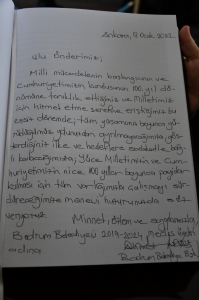 Ankara, 9 Ocak 2022
Ulu Önderimiz;
Milli mücadelenin başlangıcının ve
Cumhuriyetimizin kuruluşunun 100. yıl dö-
nümüne tanıklık ettiğimiz ve Milletimiz
için hizmet etme şerefine eriştiğimiz bu
esas dönemde, tüm yaşamımız boyunca
yolundan ayrılmayacağımıza, gös-
terdiğiniz ilke ve hedeflere sadakatle bağlı
kalacağımıza, Yüce Milletimizin ve Cum-
huriyetimizin nice 100 yıllar boyunca payidar
kalması için tüm varlığımızla çalışmayı sür-
düreceğimize manevi huzurunuzda söz
veriyoruz.
Minnet, özlem ve saygılarımızla,
Bodrum Belediyesi 2019-2024 Meclis Üyeleri
adına
Bodrum Belediye Bşk.